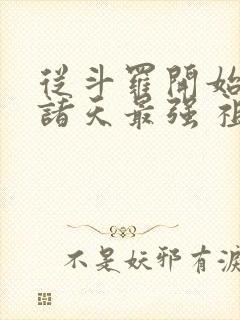 從斗羅開始
諸天最强 祖
不是妖邪有淚